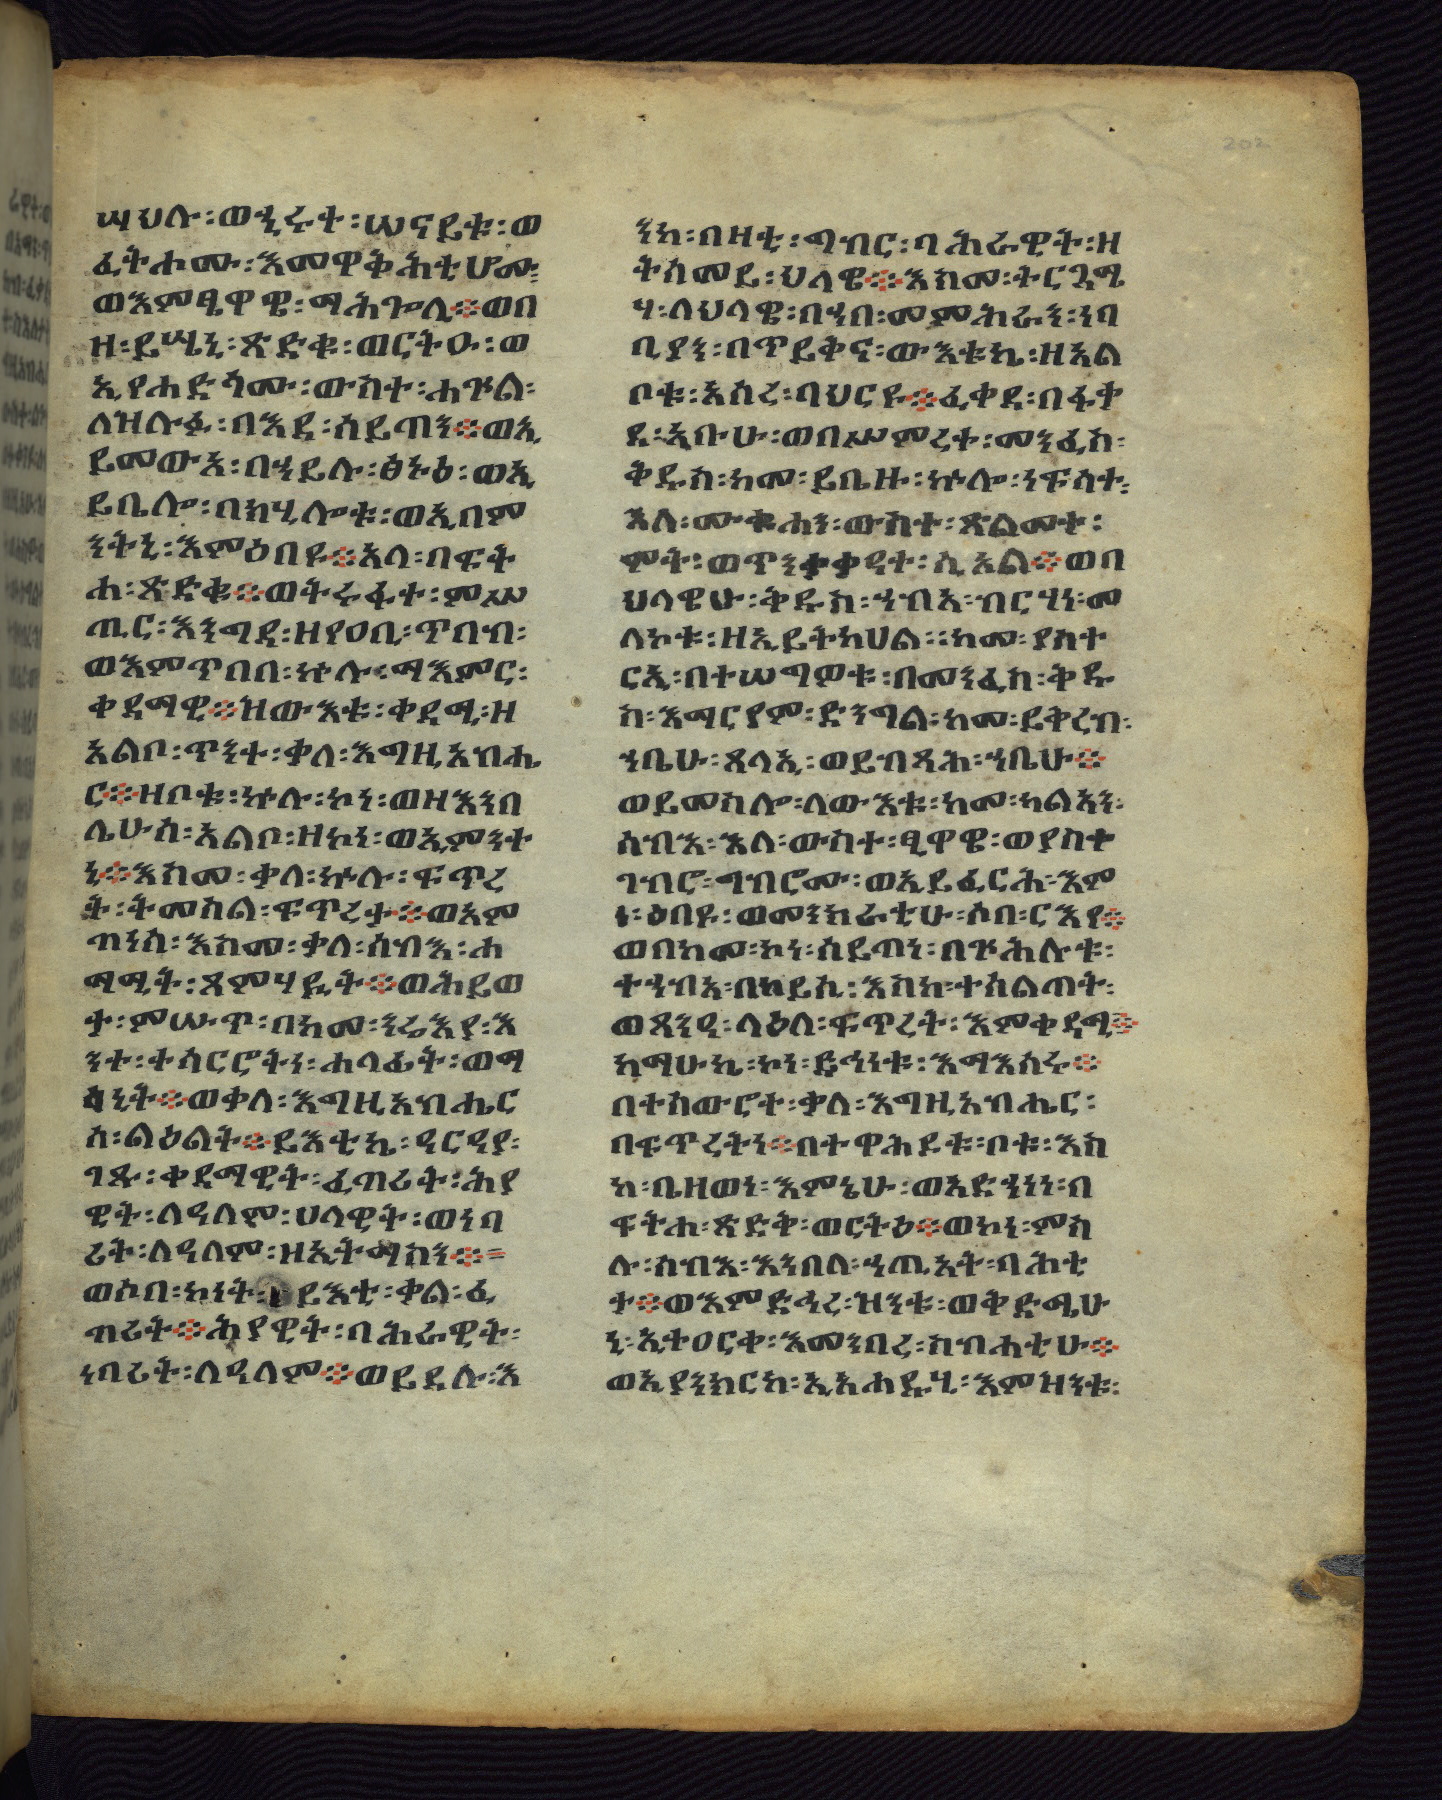 ሣህሉ፡ወኂሩተ፡ሠናይቱ፡ወ
ፈትሖሙ፡እመዋቅሕቲሆሙ፡
ወእምፂዋዌ፡ማሕጐሊ፨ወበ
ዘ፡ይሤኒ፡ጽድቁ፡ወርትዑ፡ወ
ኢየሐድጎሙ፡ውስተ፡ሐጕል፡
ለዝሉፉ፡በእደ፡ሰይጣን፨ወኢ
ይመውእ፡በኀይሉ፡ፅኑዕ፡ወኢ
ይቤሎ፡በክሂሎቱ፡ወኢበም
ንትኒ፡እምዕበዩ፨አላ፡በፍት
ሐ፡ጽድቁ፨ወትሩፋተ፡ምሥ
ጢር፡እንግዳ፡ዘየዐቢ፡ጥበብ፡
ወእምጥበበ፡ኵሉ፡ማእምር፡
ቀዳማዊ፨ዝውእቱ፡ቀዳሚ፡ዘ
አልቦ፡ጥንተ፡ቃለ፡እግዚአብሔ
ር፨ዘቦቱ፡ኵሉ፡ኮነ፡ወዘእንበ
ሌሁሰ፡አልቦ፡ዘኮነ፡ወኢምንተ
ኒ፨እስመ፡ቃለ፡ኵሉ፡ፍጥረ
ት፡ትመስል፡ፍጥረታ፨ወእም
ጣነሰ፡እስመ፡ቃለ፡ሰብእ፡ሐ
ማሚት፡ጻምሃዪት፨ወሕይወ
ታ፡ምሡጥ፡በከመ፡ንሬእያ፡እ
ንተ፡ተሳርሮትነ፡ሐላፊት፡ወማ
ሳኒት፨ወቃለ፡እግዚአብሔር
ሰ፡ልዕልት፨ይእቲኬ፡ዲርዲያ፡
ገጹ፡ቀዳማዊት፡ፈጣሪት፡ሕያ
ዊት፡ለዓለም፡ህላዊት፡ወነባ
ሪት፡ለዓለም፡ዘኢትማስን፨=
ወሶበ፡ኮነት፡ይእቲ፡ቃል፡ፈ
ጣሪት፨ሕያዊት፡ባሕራዊት፡
ነባሪት፡ለዓለም፨ወይደሉ፡እ
ንከ፡በዛቲ፡ግብር፡ባሕራዊት፡ዘ
ትሰመይ፡ህላዌ፨እስመ፡ትርጓሜ
ሃ፡ለህላዌ፡በኀበ፡መምሕራን፡ነባ
ቢያን፡በጥይቅና፡ውእቱኬ፡ዘአል
ቦቱ፡አስረ፡ባህርዩ፨ፈቀደ፡በፋቀ
ደ፡አቡሁ፡ወበሥምረተ፡መንፈስ፡
ቅዱስ፡ከመ፡ይቤዙ፡ኵሎ፡ነፍሳተ፡
እለ፡ሙቁሐን፡ውስተ፡ጽልመተ፡
ሞት፡ወጥንቃቃዳተ፡ሲኦል፨ወበ
ህላዌሁ፡ቅዱስ፡ኀብአ፡ብርሃነ፡መ
ለኮቱ፡ዘኢይትከሀል፡፡ከመ፡ያስተ
ርኢ፡በተሠግዎቱ፡በመንፈስ፡ቅዱ
ስ፡እማርያም፡ድንግል፡ከመ፡ይቅረብ፡
ኀቤሁ፡ጸላኢ፡ወይብጻሕ፡ኀቤሁ፨
ወይመስሎ፡ለውእቱ፡ከመ፡ካልኣን፡
ሰብእ፡እለ፡ውስተ፡ፂዋዌ፡ወያስተ
ገብሮ፡ግብሮሙ፡ወኢይፈርሕ፡እም
፡ዕበዩ፡ወመንክራቲሁ፡ሶበ፡ርእየ፨
ወበከመ፡ኮነ፡ሰይጣነ፡በጕሕሉቱ፡
ተኀብአ፡በከይሲ፡እስከ፡ተስልጠት፡
ወጻንዲ፡ላዕለ፡ፍጥረት፡እምቀዳሚ፨
ከማሁኬ፡ኮነ፡ድኅነቱ፡እማእሰሩ፨
በተከውሮተ፡ቃለ፡እግዚአብሔር፡
በፍጥረትነ፨በተዋሕዶቱ፡ቦቱ፡እስ
ከ፡ቤዘወነ፡እምኔሁ፡ወአድኀነነ፡በ
ፍትሐ፡ጽድቅ፡ወርትዕ፨ወኮነ፡ምስ
ሉ፡ሰብእ፡እንበለ፡ኀጢአት፡ባሕቲ
ታ፨ወእምድኅረ፡ዝንቱ፡ወቅድሜሁ
ኒ፡ኢተዐርቀ፡እመንበረ፡ስብሐቲሁ፨
ወአያንክርከ፡ኢአሐዱሂ፡እምዝንቱ፡